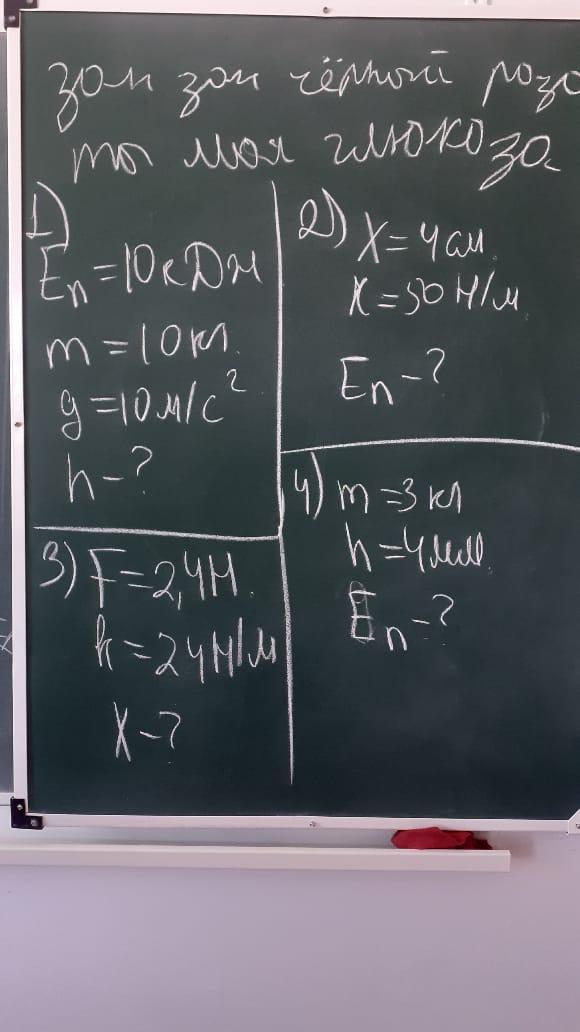 зон зон чёрный розо
то моя глюкоза.
1)
Eп = 10кДж
m = 10кг.
g = 10м/с²
h - ?
2) X = 4см.
K = 50 Н/м.
Eп - ?
3) F = 2,4Н.
k = 24Н/м
X - ?
4) m = 3 кг
h = 4мм.
Eп - ?